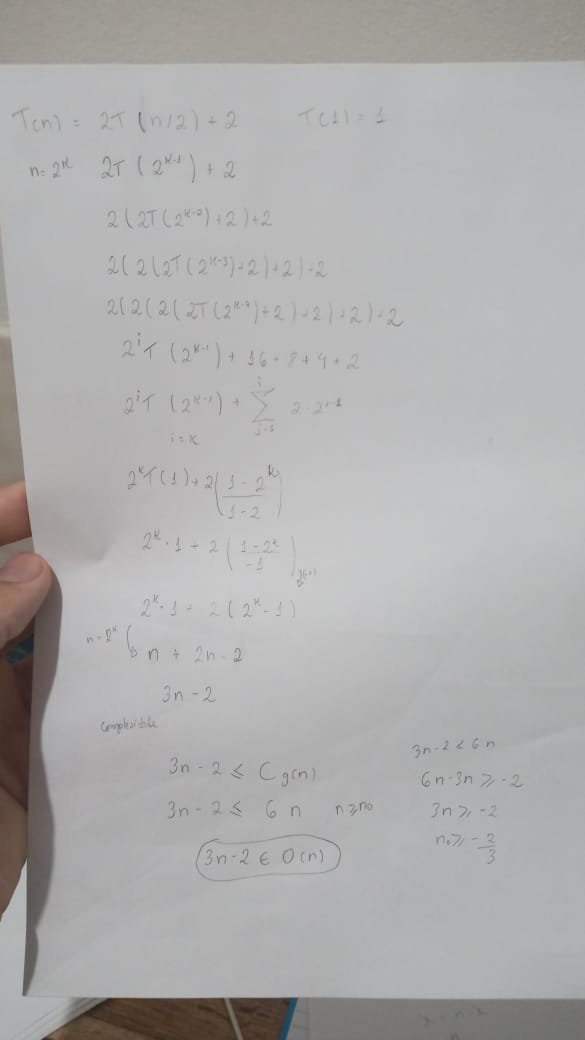 T(n) = 2T (n/2) + 2 T(1) = 1
n = 2^k 2T ( 2^{k-1} ) + 2
2 ( 2T ( 2^{k-2} ) + 2 ) + 2
2( 2( 2T ( 2^{k-3} ) + 2 ) + 2 ) + 2
2( 2( 2( 2T ( 2^{k-4} ) + 2 ) + 2 ) + 2 ) + 2
2^i T ( 2^{k-i} ) + 16 + 8 + 4 + 2
2^i T ( 2^{k-i} ) + \sum_{j=1}^{i} 2 \cdot 2^{j-1}
i = k
2^k T(1) + 2 ( \frac{1 - 2^k}{1 - 2} )
2^k . 1 + 2 ( \frac{1 - 2^k}{-1} )
2^k . 1 + 2 ( 2^k - 1 )
n = 2^k
n + 2n - 2
3n - 2
Complexidade
3n - 2 ≤ C g(n)
3n - 2 ≤ 6 n n ≥ n_0
3n - 2 ∈ O(n)
3n - 2 ≤ 6n
6n - 3n ≥ -2
3n ≥ -2
n_0 ≥ - \frac{2}{3}